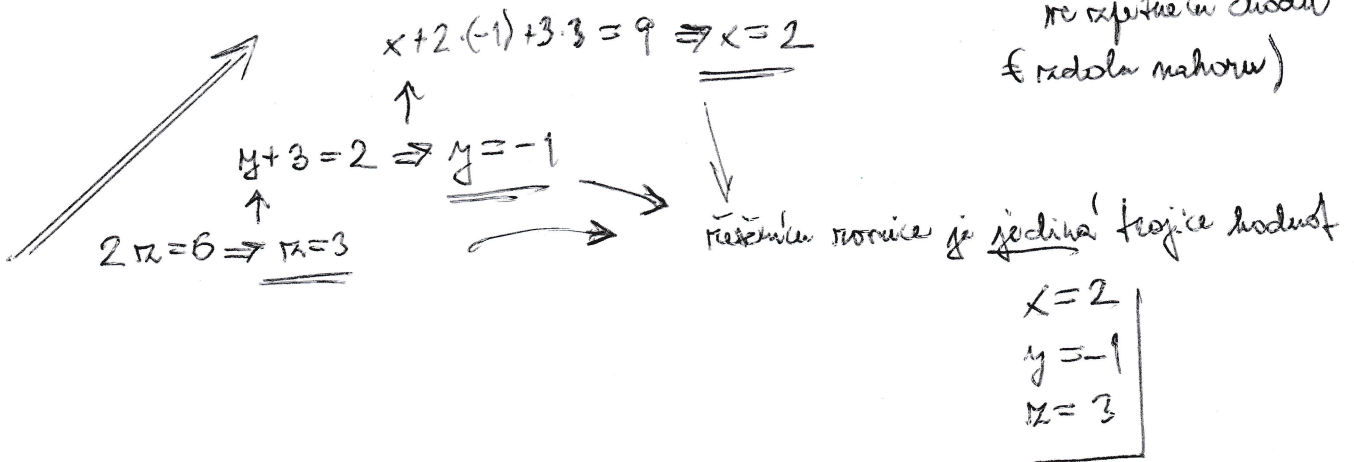 ve zpětném chodu
x+2·(-1)+3·3=9 ⇒ x=2
(zdola nahoru)
y+3=2 ⇒ y=-1
2z=6 ⇒ z=3
řešením rovnice je jediná trojice hodnot
x=2
y=-1
z=3